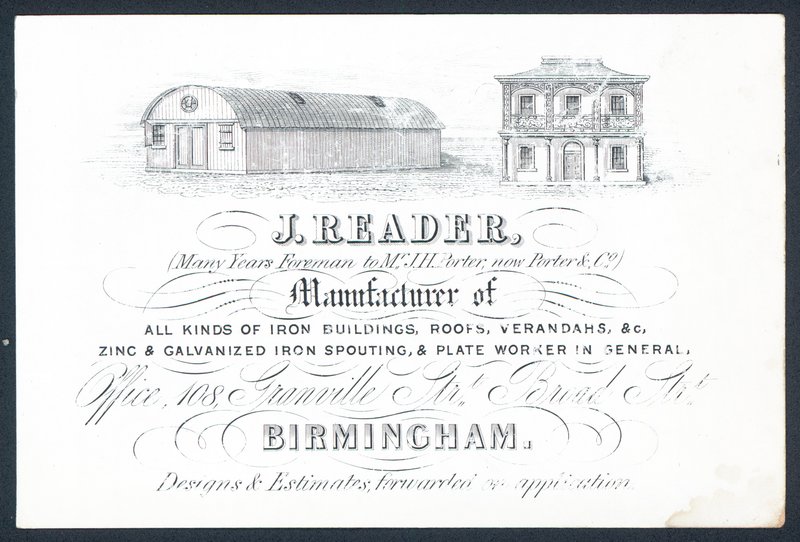 J. READER,
(Many Years Foreman to Mr. J.H. Porter, now Porter & Co.)
Manufacturer of
ALL KINDS OF IRON BUILDINGS, ROOFS, VERANDAHS, &c,
ZINC & GALVANIZED IRON SPOUTING, & PLATE WORKER IN GENERAL.
Office, 108, Granville Strt. Broad Strt.
BIRMINGHAM.
Designs & Estimates, forwarded on application.